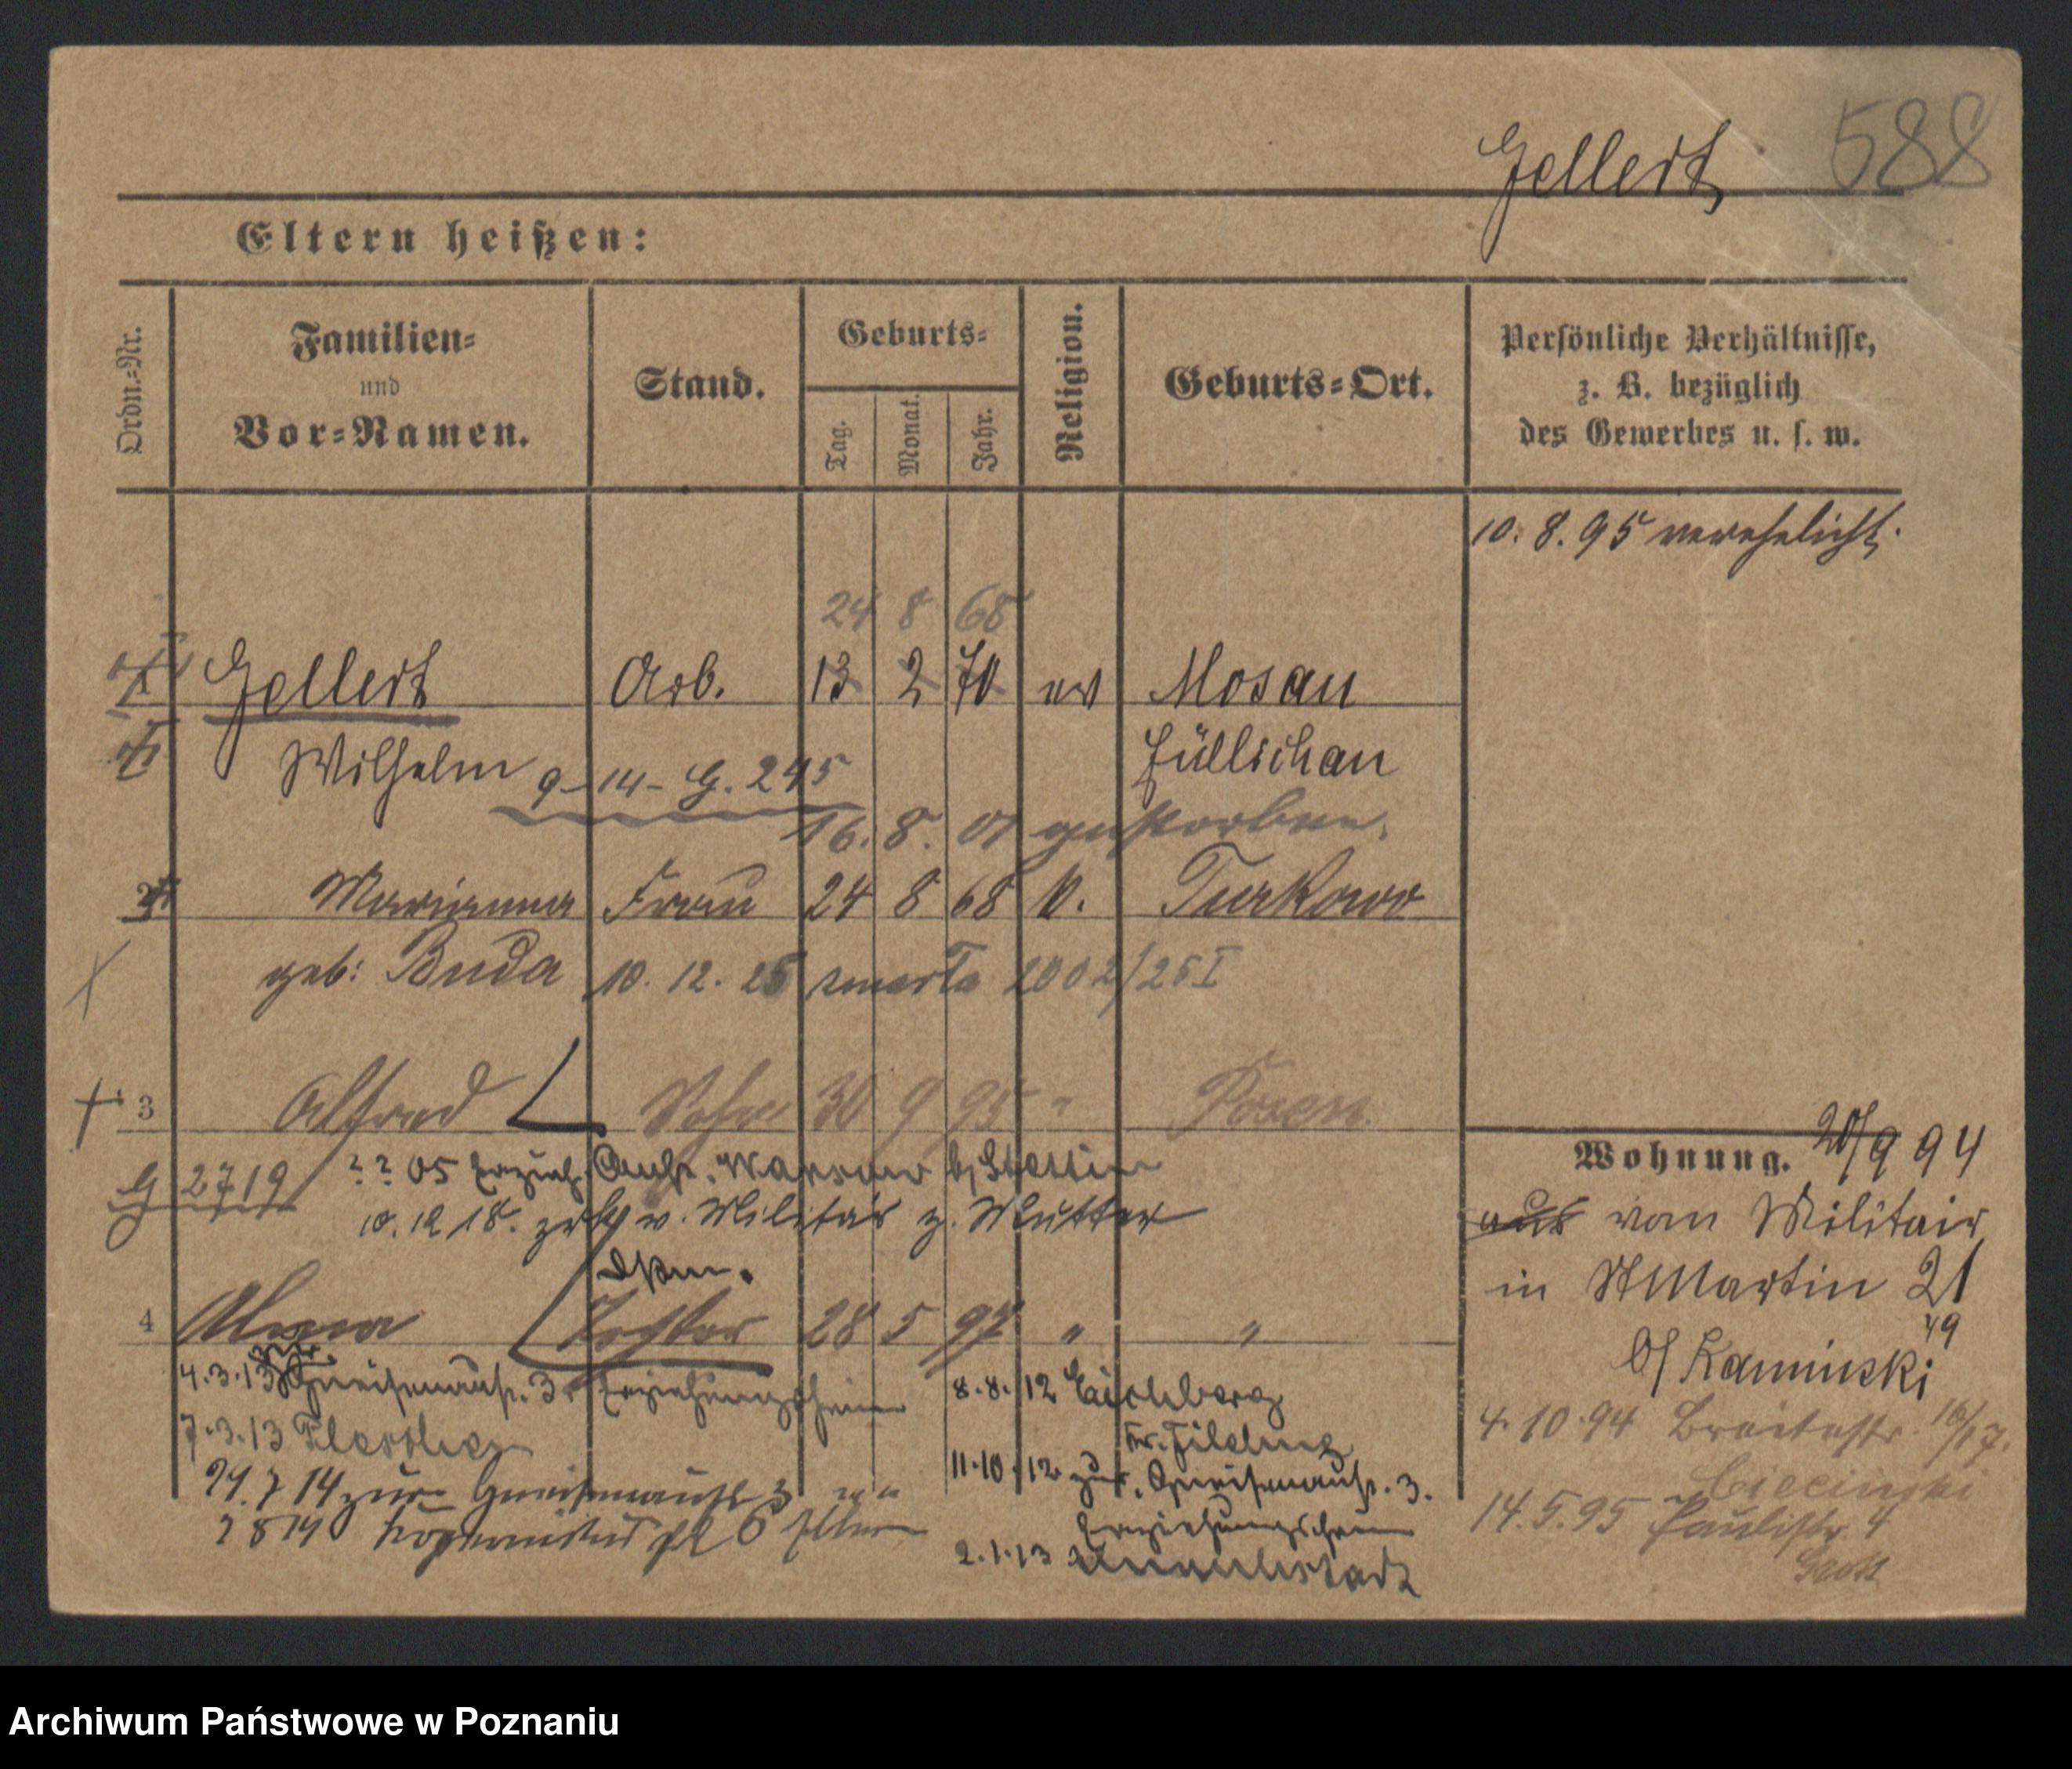 588
Gellert
Eltern heißen:
Ordn.=Nr.
Familien=
und
Vor=Namen.
Stand.
Geburts=
Tag.
Monat.
Jahr.
Religion.
Geburts=Ort.
Persönliche Verhältnisse,
z. B. bezüglich
des Gewerbes u. s. w.
10. 8. 95 verehelicht.
24 8 68
Gellert Arb. 13 2 70 ev Mosau
Wilhelm Züllichau
9-14- G. 245
16. 8. 01 gestorben.
2 Marianna Frau 24 8 68 k. Turkowo
geb: Buda 10. 12. 25 zmarła 2002/25 I
3 Alfred Sohn 30 9 95 " Posen
G 2719 ? ? 05 Erzieh. Anst. Warsow b/Stettin
10. 12 18. zrk v. Militär z. Mutter
4 Tochter 28 5 97 " "
4.3.13 zur Gneisenaustr. 3. Erziehungsheim
7.3.13
24. 7 14 zur Gneisenaustr 3
7 8 14 Kopernikus pl 6 Eltern
8.8.12 Eichberg
11.10.12 zur. Gneisenaustr. 3.
Erziehungsheim
2.1.13
Wohnung. 20/9 94
aus vom Militair
in St Martin 21
49
b/ Kaminski
4. 10 94 Breitestr. 16/17.
14. 5. 95 Paulistr. 4
Archiwum Państwowe w Poznaniu